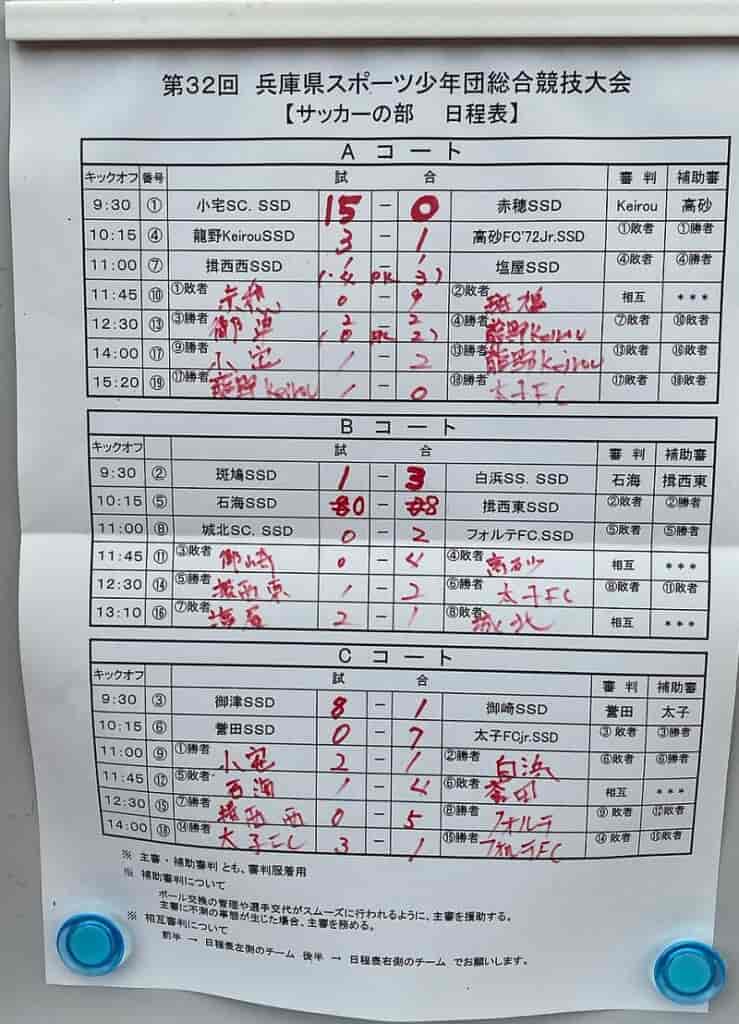 第32回 兵庫県スポーツ少年団総合競技大会
【サッカーの部 日程表】
A コート
キックオフ 番号 試 合 審判 補助審
9:30 ① 小宅SC. SSD 15 - 0 赤穂SSD Keirou 高砂
10:15 ④ 龍野KeirouSSD 3 - 1 高砂FC'72Jr.SSD ①敗者 ①勝者
11:00 ⑦ 揖西西SSD 1 - 1 塩屋SSD ④敗者 ④勝者
(4 PK 3)
11:45 ⑩ ①敗者 赤穂 0 - 9 ②敗者 斑鳩 相互 ***
12:30 ⑬ ③勝者 御津 2 - 2 ④勝者 龍野Keirou ⑦敗者 ⑩敗者
(0 PK 2)
14:00 ⑰ ⑨勝者 小宅 1 - 2 ⑬勝者 龍野Keirou ⑬敗者 ⑯敗者
15:20 ⑲ ⑰勝者 龍野Keirou 1 - 0 ⑱勝者 太子FC ⑰敗者 ⑱敗者
B コート
キックオフ 試 合 審判 補助審
9:30 ② 斑鳩SSD 1 - 3 白浜SS. SSD 石海 揖西東
10:15 ⑤ 石海SSD 0 - 8 揖西東SSD ②敗者 ②勝者
11:00 ⑧ 城北SC. SSD 0 - 2 フォルテFC.SSD ⑤敗者 ⑤勝者
11:45 ⑪ ③敗者 御崎 0 - 4 ④敗者 高砂 相互 ***
12:30 ⑭ ⑤勝者 揖西東 1 - 2 ⑥勝者 太子FC ⑧敗者 ⑪敗者
13:10 ⑯ ⑦敗者 塩屋 2 - 1 ⑧敗者 城北 相互 ***
C コート
キックオフ 試 合 審判 補助審
9:30 ③ 御津SSD 8 - 1 御崎SSD 誉田 太子
10:15 ⑥ 誉田SSD 0 - 7 太子FCjr.SSD ③敗者 ③勝者
11:00 ⑨ ①勝者 小宅 2 - 1 ②勝者 白浜 ⑥敗者 ⑥勝者
11:45 ⑫ ⑤敗者 石海 1 - 4 ⑥敗者 誉田 相互 ***
12:30 ⑮ ⑦勝者 揖西西 0 - 5 ⑧勝者 フォルテ ⑨敗者 ⑫敗者
14:00 ⑱ ⑭勝者 太子FC 3 - 1 ⑮勝者 フォルテFC ⑭敗者 ⑮敗者
※ 主審・補助審判 とも、審判服着用
※ 補助審判について
ボール交換の管理や選手交代がスムーズに行われるように、主審を援助する。
主審に不測の事態が生じた場合、主審を務める。
※ 相互審判について
前半 → 日程表左側のチーム 後半 → 日程表右側のチーム でお願いします。